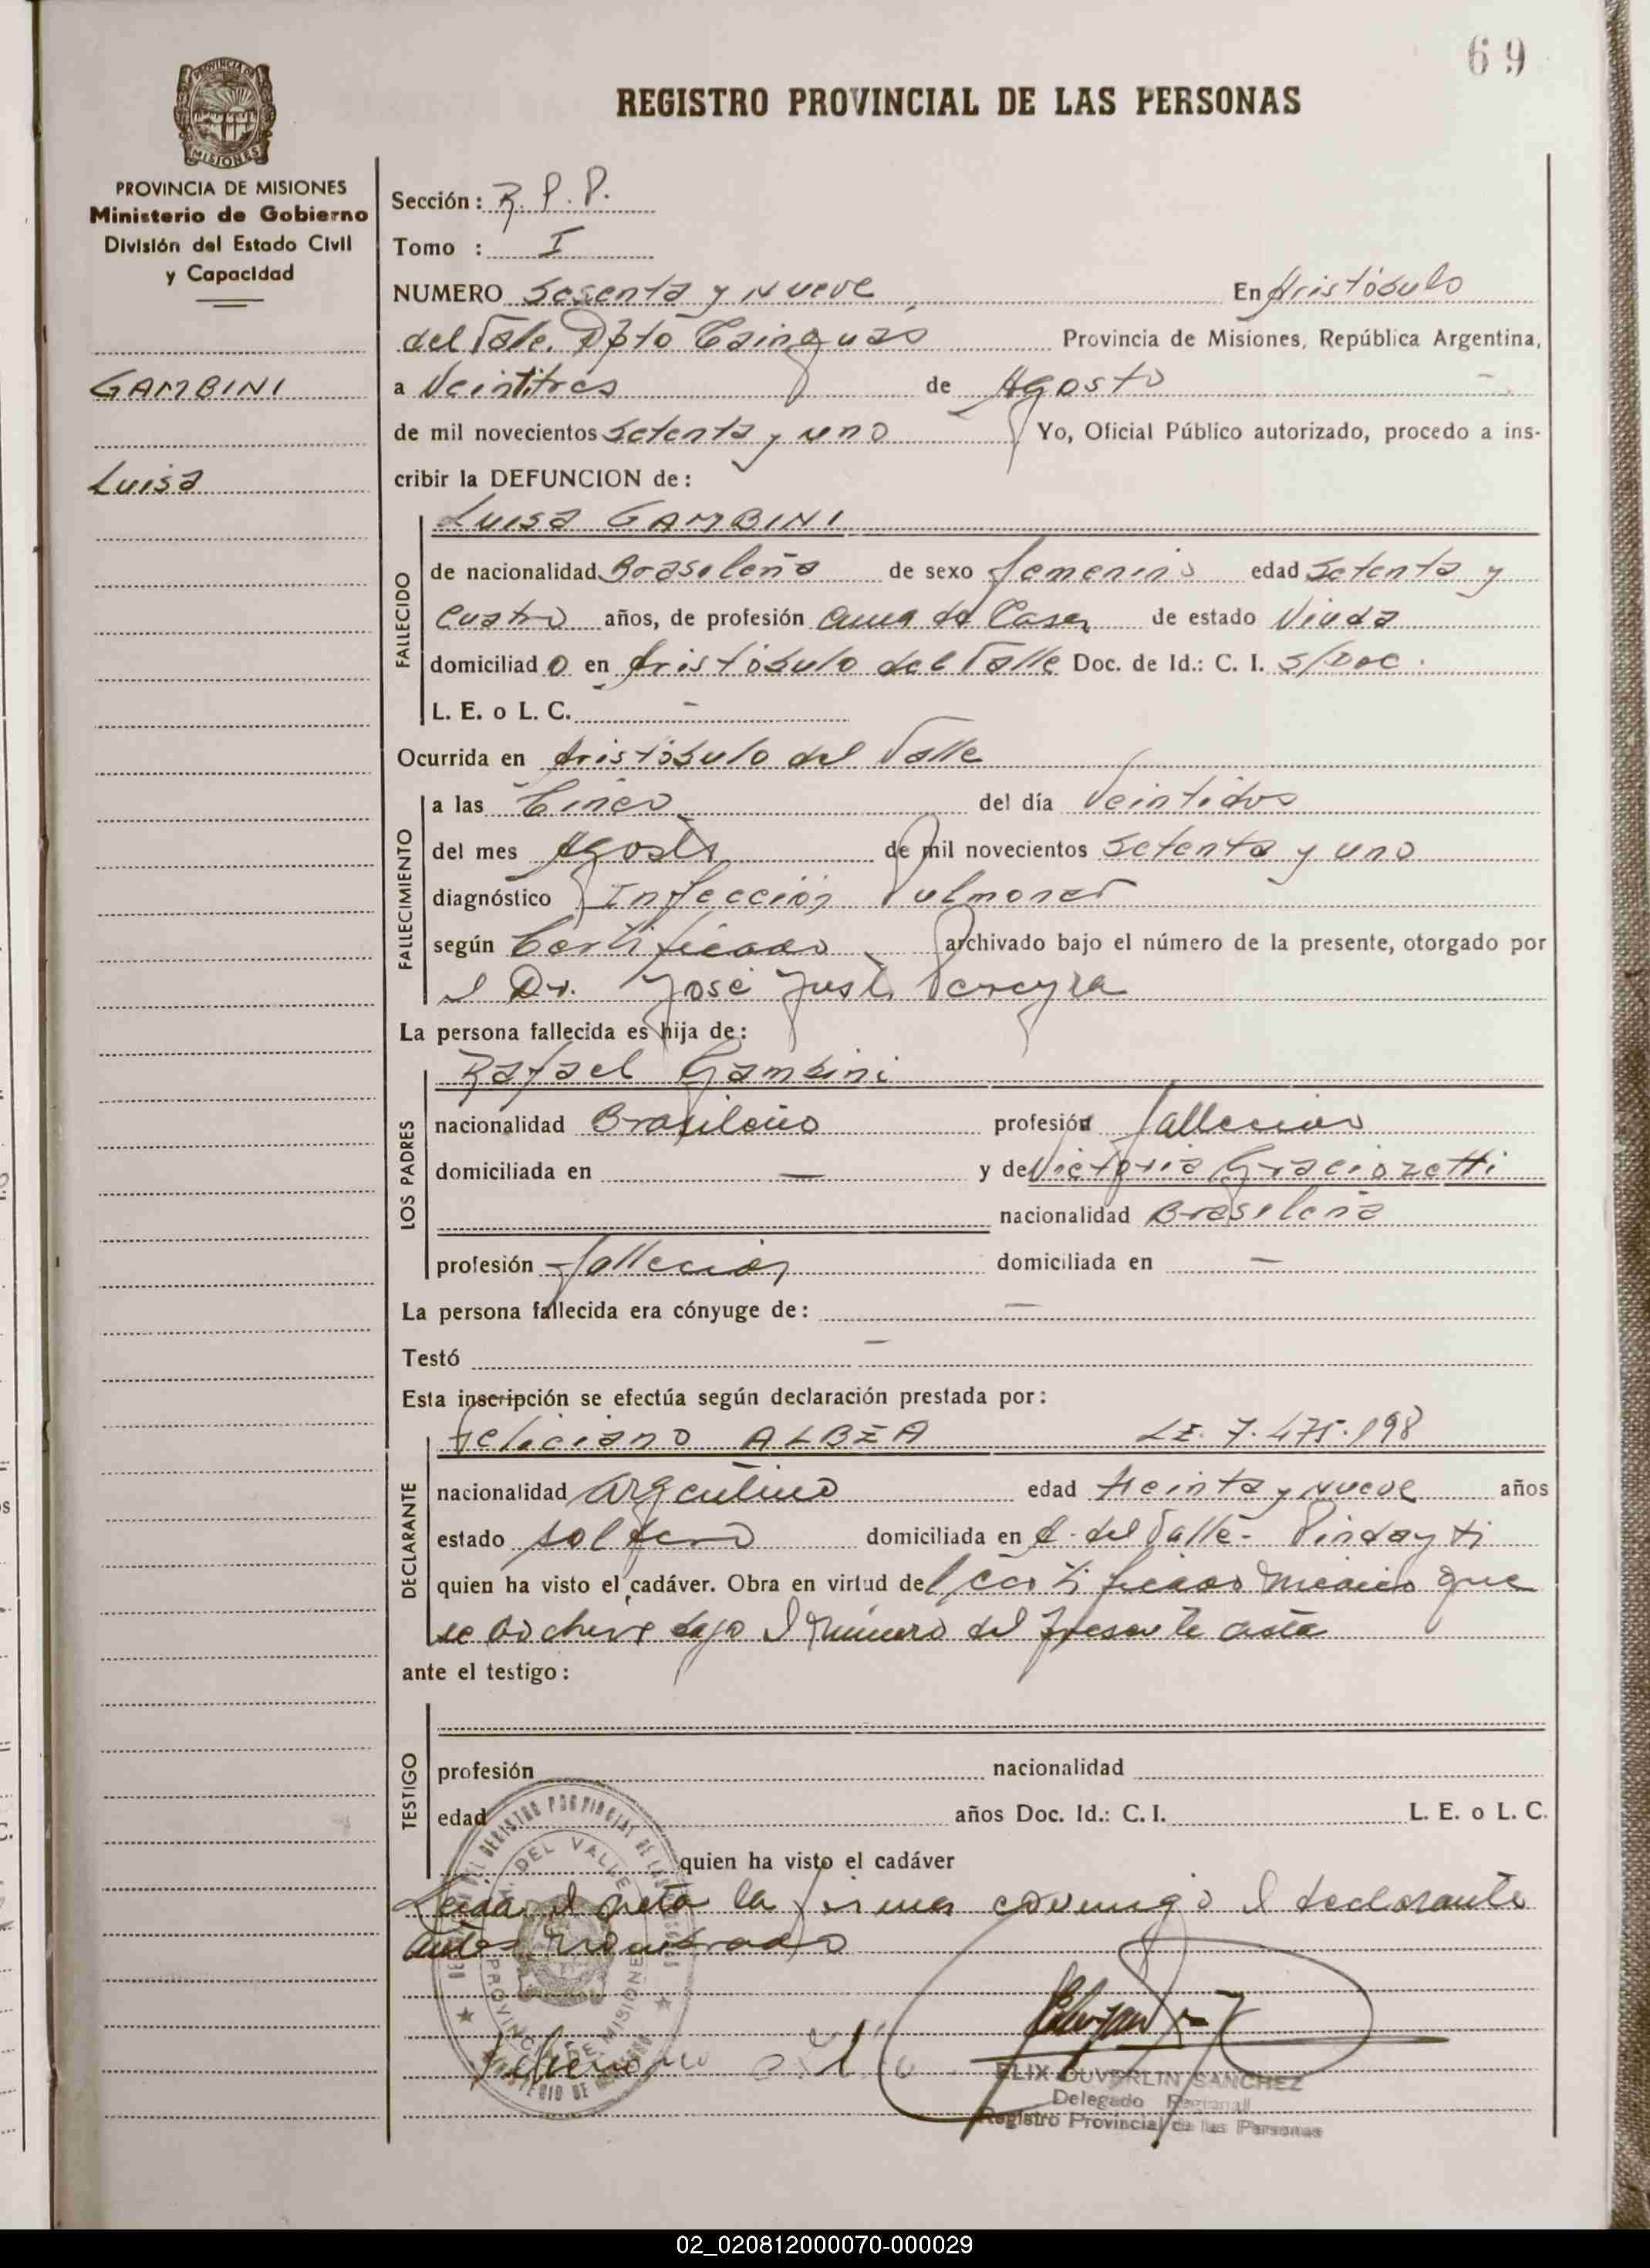 69
REGISTRO PROVINCIAL DE LAS PERSONAS
PROVINCIA DE MISIONES
Ministerio de Gobierno
División del Estado Civil
y Capacidad
GAMBINI
Luisa
Sección: R. P. P.
Tomo : I
NUMERO Sesenta y Nueve En Aristóbulo
del Valle. Dpto Cainguás Provincia de Misiones, República Argentina,
a Veintitres de Agosto
de mil novecientos setenta y uno Yo, Oficial Público autorizado, procedo a ins-
cribir la DEFUNCION de:
Luisa GAMBINI
FALLECIDO
de nacionalidad Brasileña de sexo femenino edad setenta y
cuatro años, de profesión ama de Casa de estado Viuda
domiciliad o en Aristóbulo del Valle Doc. de Id.: C. I. S/Doc.
L. E. o L. C. -
Ocurrida en Aristóbulo del Valle
FALLECIMIENTO
a las Cinco del día Veintidos
del mes Agosto de mil novecientos setenta y uno
diagnóstico Infección Pulmonar
según Certificado archivado bajo el número de la presente, otorgado por
el Dr. José Justo Pereyra
La persona fallecida es hija de:
LOS PADRES
Rafael Gambini
nacionalidad Brasileño profesión fallecido
domiciliada en — y de Victoria Graciozetti
nacionalidad Brasileña
profesión fallecida domiciliada en —
La persona fallecida era cónyuge de: —
Testó —
Esta inscripción se efectúa según declaración prestada por:
DECLARANTE
Feliciano ALBEA LE. 7.475.198
nacionalidad argentino edad treinta y nueve años
estado soltero domiciliada en A. del Valle - Pindayti
quien ha visto el cadáver. Obra en virtud del certificado médico que
se archiva bajo el número del presente acta
ante el testigo:
TESTIGO
profesión nacionalidad
edad años Doc. Id.: C. I. L. E. o L. C.
quien ha visto el cadáver
Leida el acta la firma conmigo el declarante
antes nombrado
DEL VALLE
PROVINCIA DE MISIONES
ELIX DUVERLIN SANCHEZ
Delegado Regional
Registro Provincial de las Personas
02_020812000070-000029